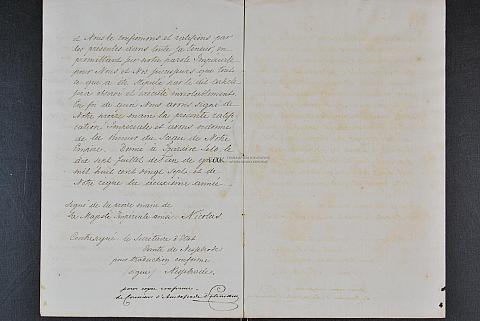 et Nous le confirmons et ratifions par
les présentes dans toute sa teneur, en
promettant sur notre parole Impériale
pour Nous et Nos successeurs que tout
ce qui a été stipulé par le dit article
sera observé et exécuté inviolablement.
En foi de quoi Nous avons signé de
Notre propre main la présente ratifi-
cation Impériale et avons ordonné
de la munir du Sceau de Notre
Empire. Donné à Le
dix sept Juillet de l'an de grâce
mil huit cent vingt sept et de
Notre règne la deuxième année
signé de la propre main de
Sa Majesté Impériale ainsi: Nicolas
Contresigné: le Secrétaire d'Etat
Comte de Nesselrode
pour traduction conforme
(signé) Nesselrode
pour copie conforme